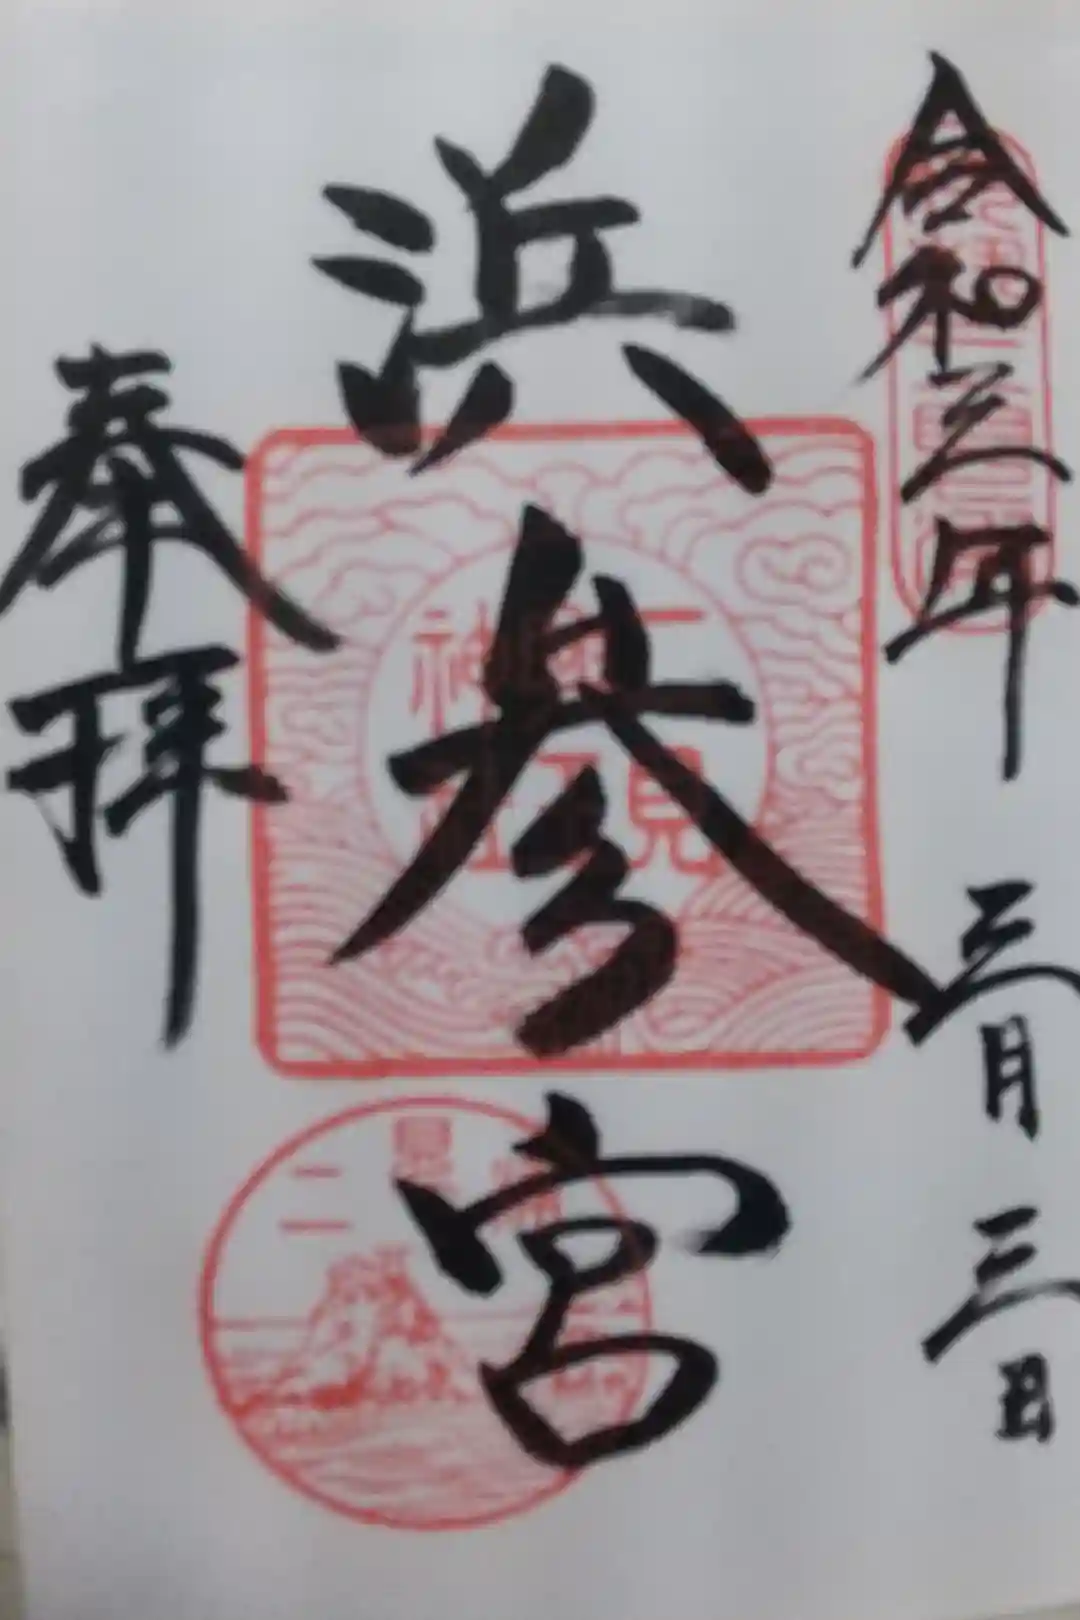 令和三年 三月 三日
浜参宮
奉拝
二見
神社
二見浦